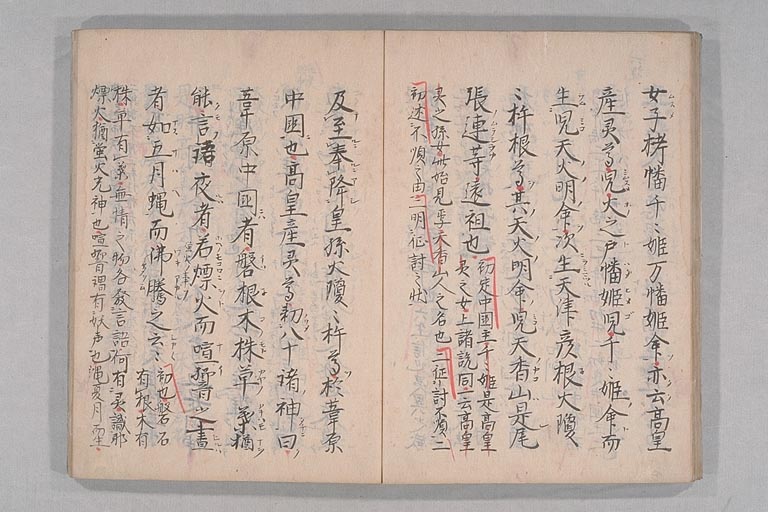 女子栲幡千〻姫万幡姫命亦云高皇
産灵尊児火之戸幡姫児千〻姫命而
生児天火明命次生天津彦根火瓊
〻杵根尊其天火明命児天香山是尾
張連等遠祖也
初定中國主千〻姫是高皇
灵之女上諸説同二云高皇
灵之孫女此始見李天香山人之名也二征討不順二
初述不順之由二明征討之状
及至奉降皇孫火瓊〻杵尊於葦原
中国也高皇産灵尊初八十諸神曰
葦原中国者磐根木株草葉猶
能言語夜者若熛火而喧響之晝
者如五月蝿而沸騰之云〻
初也磐石
有根木有
株草有葉無情之物各發言語何有灵識耶
熛火猶蛍火光神也喧響謂有妖声也蝿夏月而生